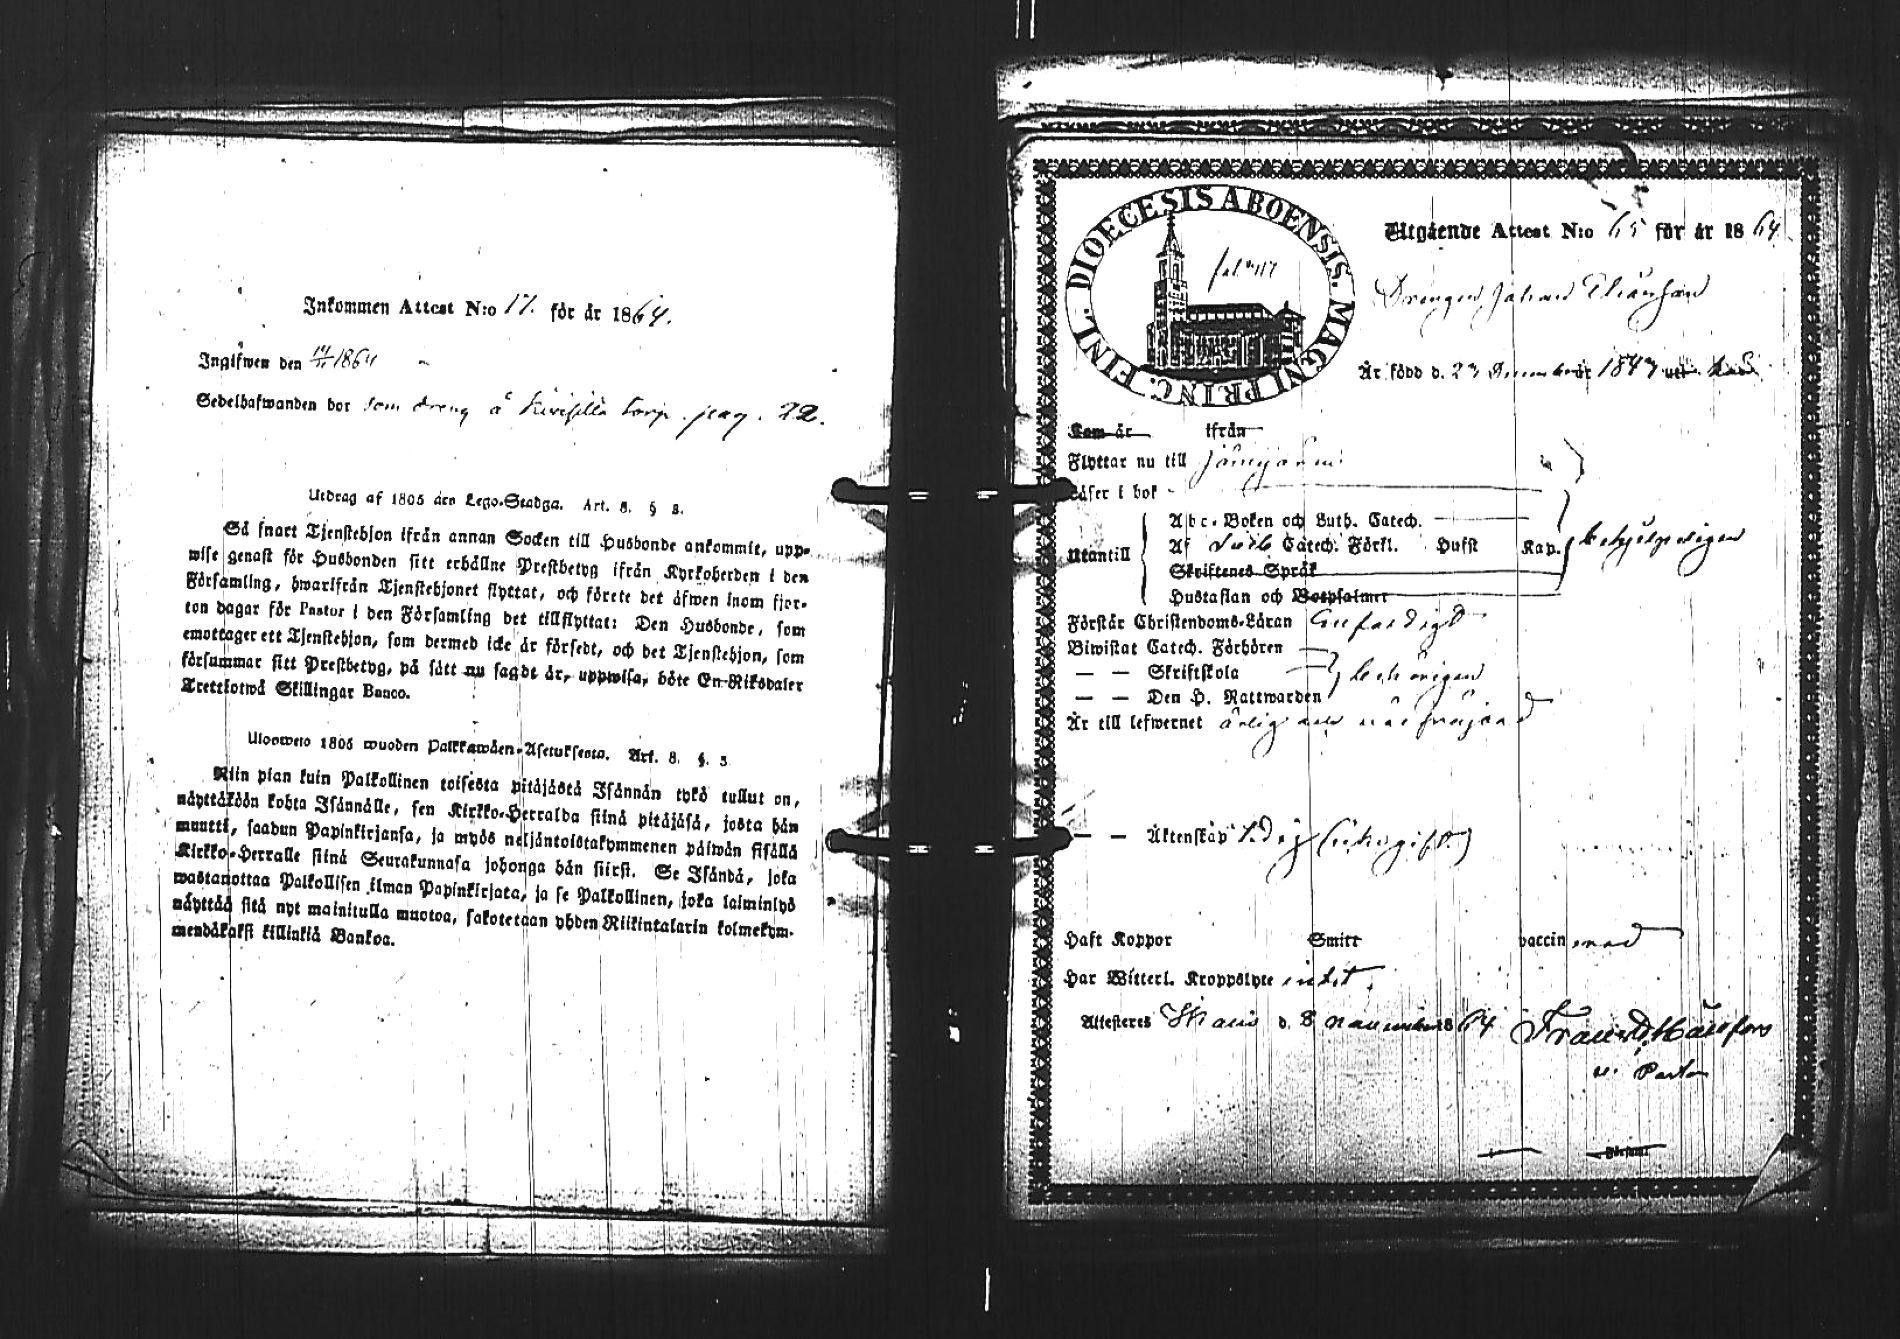 Inkommen Attest N:o 17. för år 1864.
Ingifwen den 14/11 1864
Sedelhafwanden bor som dreng å torp. pag. 22.
Utdrag af 1805 års Lego-Stadga. Art. 8. § 3.
Så snart Tjenstehjon ifrån annan Socken till Husbonde ankommit, upp-
wise genast för Husbonden sitt erhållne Prestbetyg ifrån Kyrkoherden i den
Församling, hwarifrån Tjenstehjonet flyttat, och förete det äfwen inom fjor-
ton dagar för Pastor i den Församling det tillflyttat: Den Husbonde, som
emottager ett Tjenstehjon, som dermed icke är försedt, och det Tjenstehjon, som
försummar sitt Prestbetyg, på sätt nu sagdt är, uppwisa, böte En Riksdaler
Trettiotwå Skillingar Banco.
Ulosweto 1805 wuoden Palkkawäen-Asetuksesta. Art. 8. §. 3
Niin pian kuin Palkollinen toisesta pitäjästä Isännän tykö tullut on,
näyttäköön kohta Isännälle, sen Kirkko-Herralda siinä pitäjäsä, josta hän
muutti, saadun Papinkirjansa, ja myös neljäntoistakymmenen päiwän sisällä
Kirkko-Herralle siinä Seurakunnasa johonga hän siirsi. Se Isändä, joka
wastanottaa Palkollisen ilman Papinkirjata, ja se Palkollinen, joka laiminlyö
näyttää sitä nyt mainitulla muotoa, sakotetaan yhden Riikintalarin kolmekym-
mendäkaksi killinkiä Bankoa.
DIOECESIS ABOENSIS. MAGNI PRINC. FINL.
fol. 117
Utgående Attest N:o 65 för år 1864
Drengen Johan
Är född d. 23 December år 1843
Kom år ifrån
Flyttar nu till
Läser i bok
Utantill
Abc-Boken och Luth. Catech.
Af Catech. Förkl. Hufst Kap.
Skriftenes Språk
Hustaflan och Botpsalmer
Förstår Christendoms-Läran
Biwistat Catech. Förhören
— — Skriftskola
— — Den H. Nattwarden
Är till lefwernet ärlig och
— — Äktenskap ledig
Haft Koppor Smitt vaccinerad
Har Witterl. Kroppslyte intet
Attesteres d. 8 november 1864
v. Pastor
Församl.